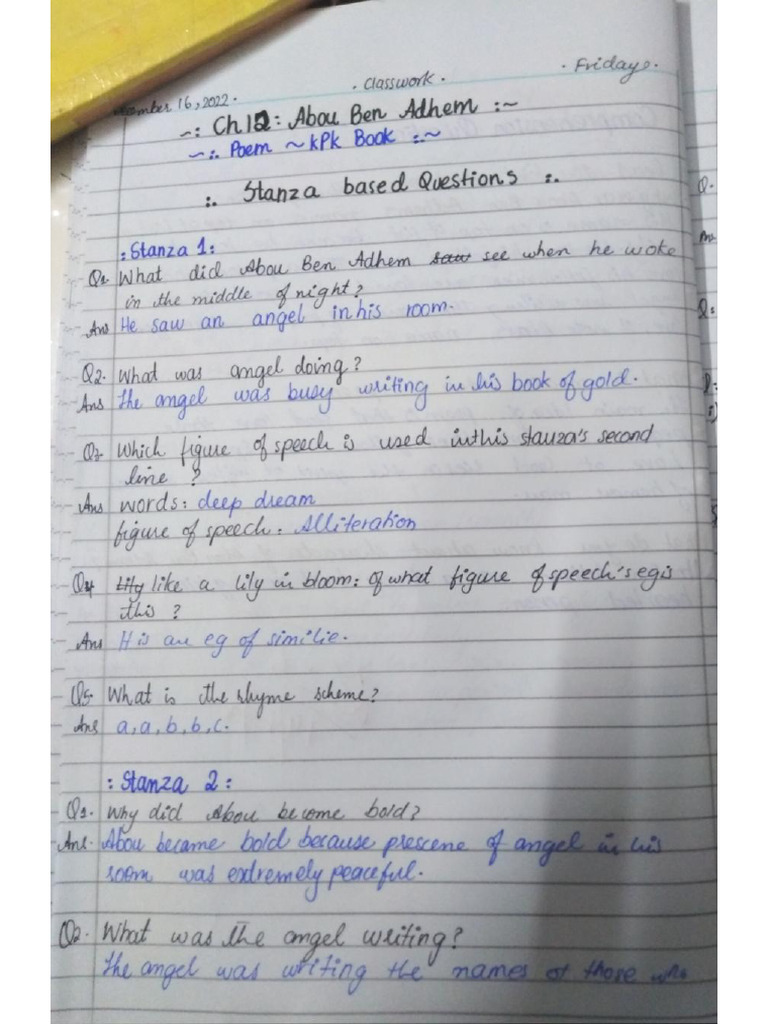 . Classwork .
. Fridays.
mber 16, 2022.
~: Ch12: Abou Ben Adhem :~
~:. Poem ~ KPK Book :.~
:. Stanza based Questions :.
: Stanza 1 :
Q1. What did Abou Ben Adhem saw see when he woke
in the middle of night?
Ans He saw an angel in his room.
Q2. What was angel doing?
Ans The angel was busy writing in his book of gold.
Q3. Which figure of speech is used in this stanza's second
line ?
Ans words: deep dream
figure of speech: Alliteration
Q4 Lily like a lily in bloom: of what figure of speech's eg is
this ?
Ans It is an eg of similie.
Q5. What is the rhyme scheme?
Ans a, a, b, b, c.
: Stanza 2 :
Q1. Why did Abou become bold?
Ans. Abou became bold because prescene of angel in his
room was extremely peaceful.
Q2. What was the angel writing?
The angel was writing the names of those who